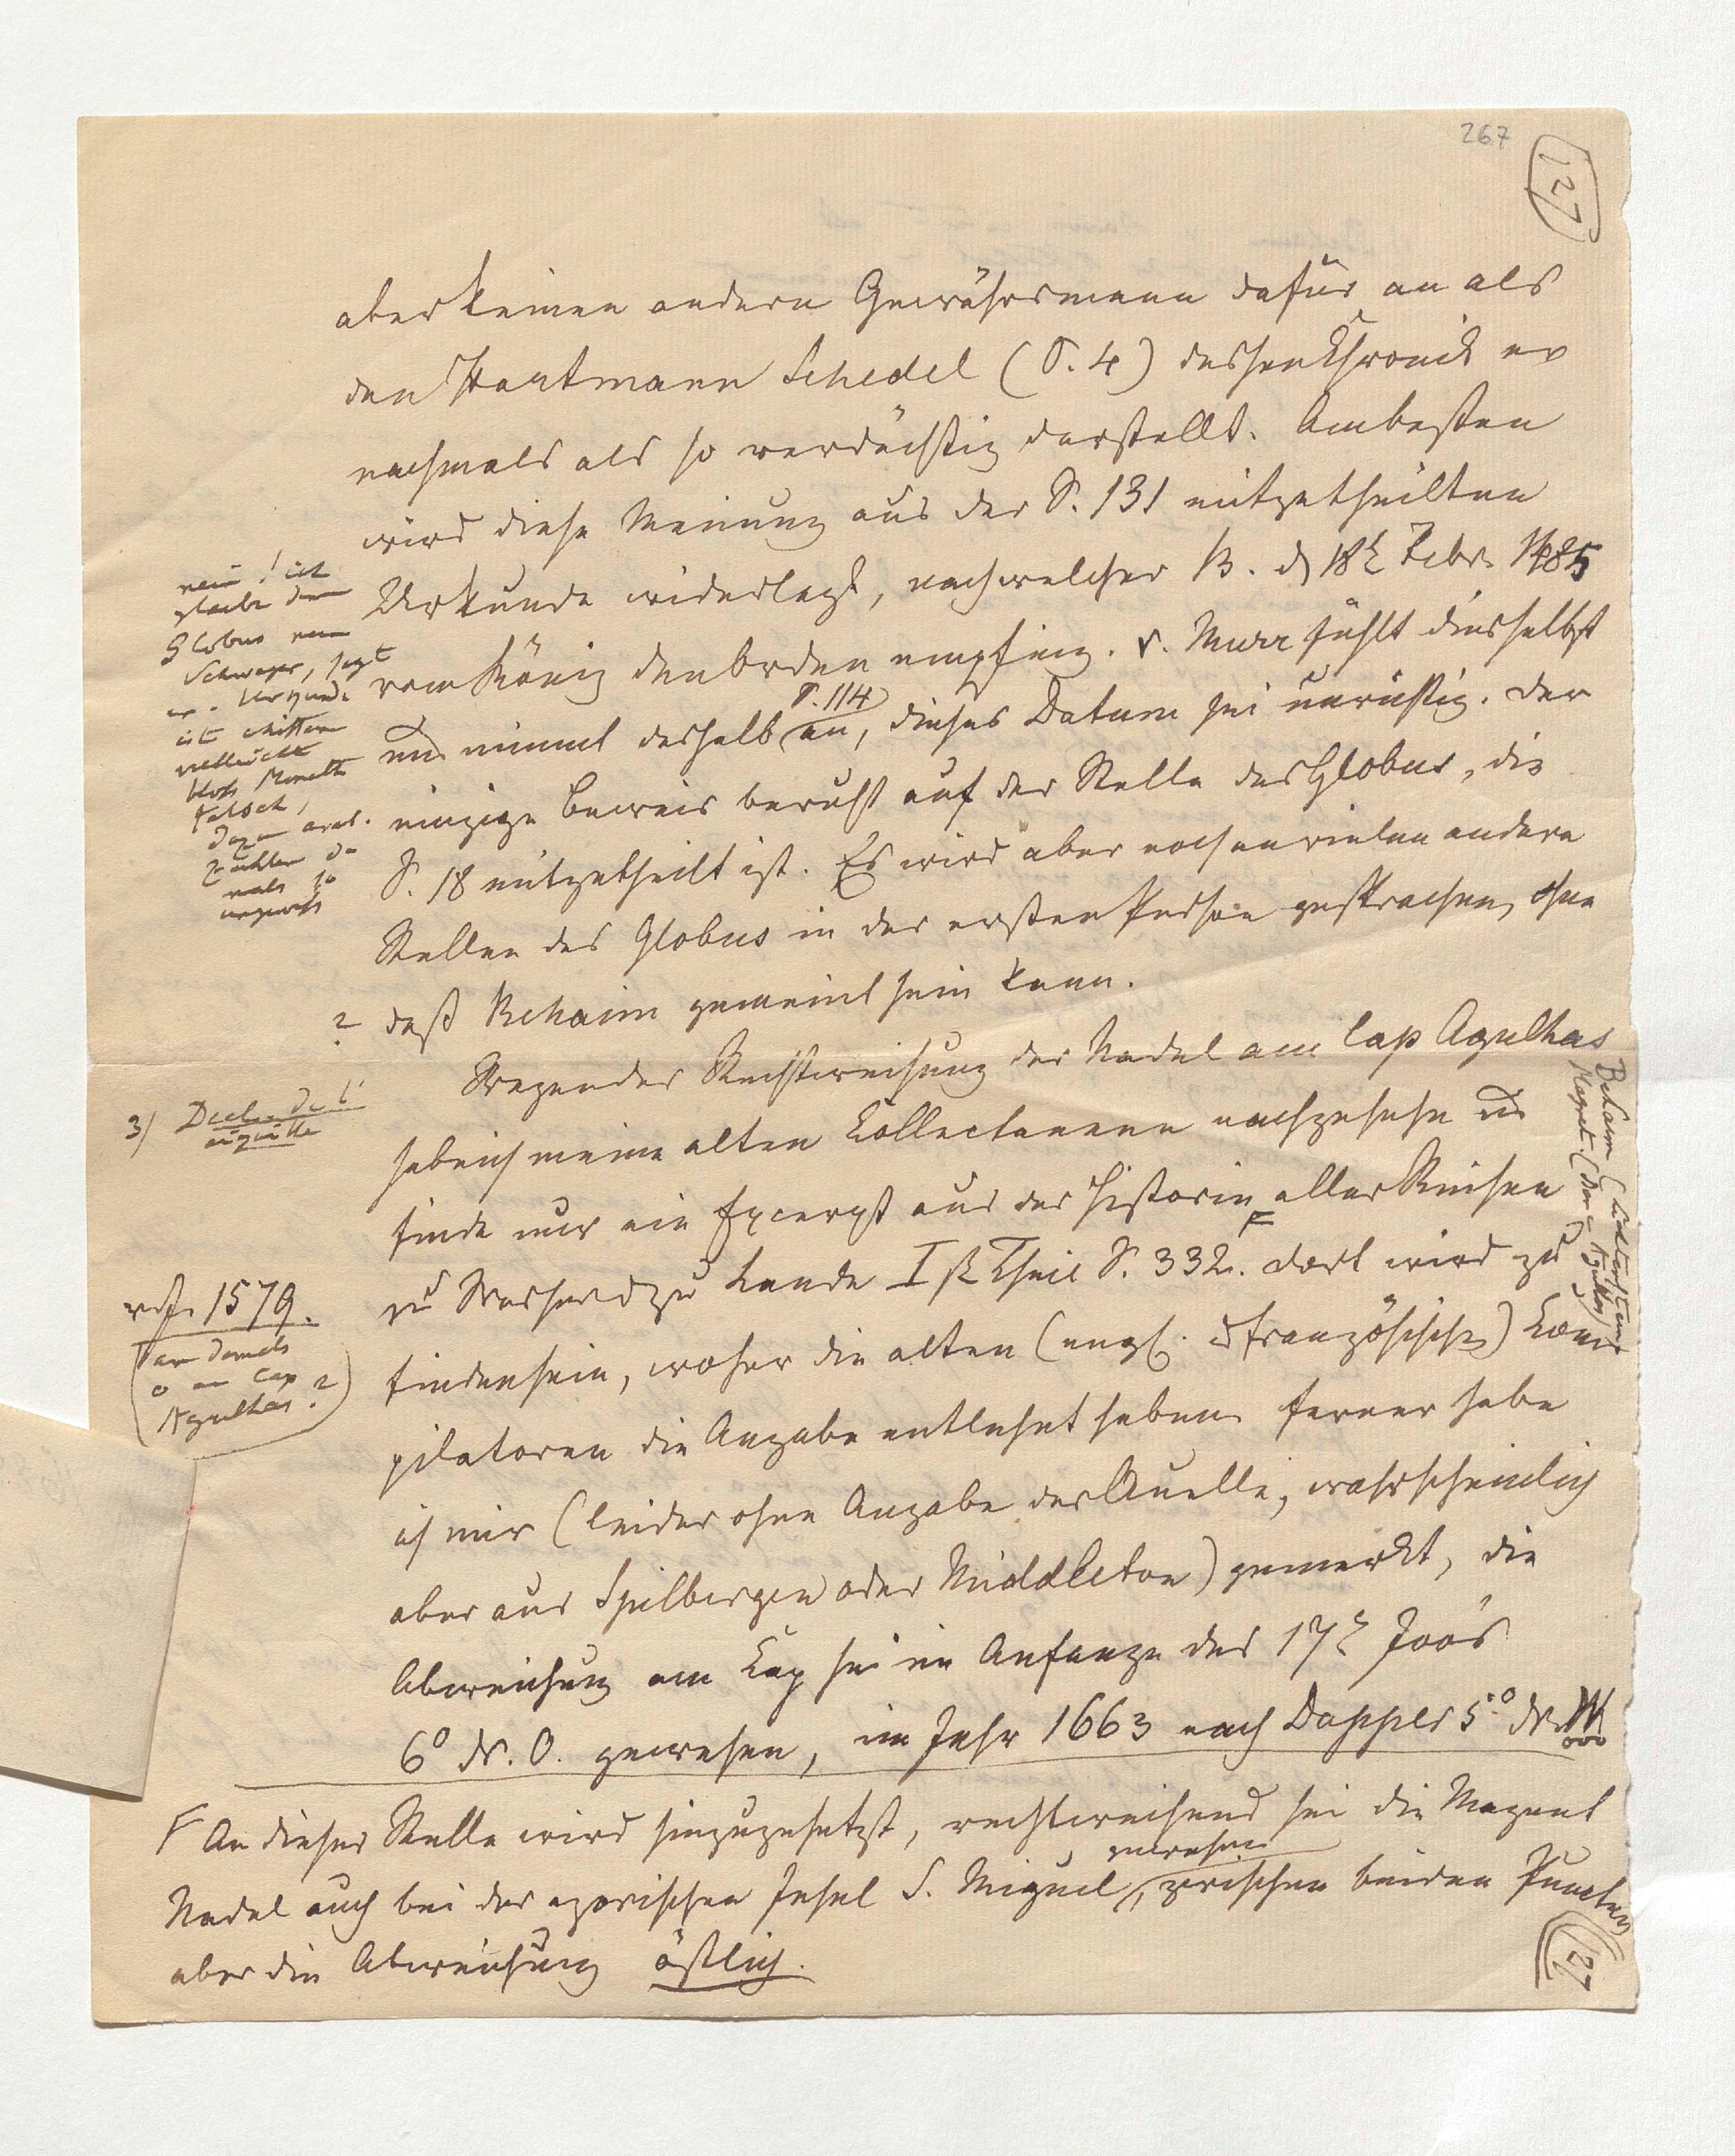 267
127
aber keinen andern Gewährsmann dafür an als
den Hartmann Schedel (S. 4) dessen Chronik er
nachmals als so verdächtig darstellt. Am besten
wird diese Meinung aus der S. 131 mitgetheilten
Urkunde widerlegt, nach welcher B. d 18t Febr. 1485
vom König den Orden empfing. v. Murr fühlt dies selbst
S. 114
und nimmt deshalb an, dieses Datum sei unrichtig. Der
einzige Beweis beruht auf der Stelle des Globus, die
S. 18 mitgetheilt ist. Es wird aber noch an vielen andern
Stellen des Globus in der ersten Person gesprochen, ohne
daß Behaim gemeint sein kann.
Wegen der Rechtweisung der Nadel am Cap Agulhas
habe ich meine alten Collectaneen nachgesehn und
finde nur ein Excerpt aus der Historie aller Reisen
zu Wasser und zu Lande Ist Theil S. 332. Dort wird zu
finden sein, woher die alten (engl. und französische) Com-
pilatoren die Angabe entlehnt haben. Ferner habe
ich mir (leider ohne Angabe der Quelle, wahrscheinlich
aber aus Spilbergen oder Middleton) gemerkt, die
Abweichung am Cap sei im Anfange des 17t Jhrs
6° N. O. gewesen, im Jahr 1663 nach Dapper 5° N. W
F An dieser Stelle wird hinzugesetzt, rechtweisend sei die Magnet
gewesen
Nadel auch bei der azorischen Insel S. Miguel, zwischen beiden Puncten
aber die Abweichung östlich.
nein! ich
glaube dem
Globus
Schwager, sagt
er. Urkunde
ist
vielleicht
bloss
falsch,
arab.
Zahlen da
mals so
ungewiss
?
3)
1579.
damals
0 am Cap
Agulhas?)
Behaim
Magnet
127